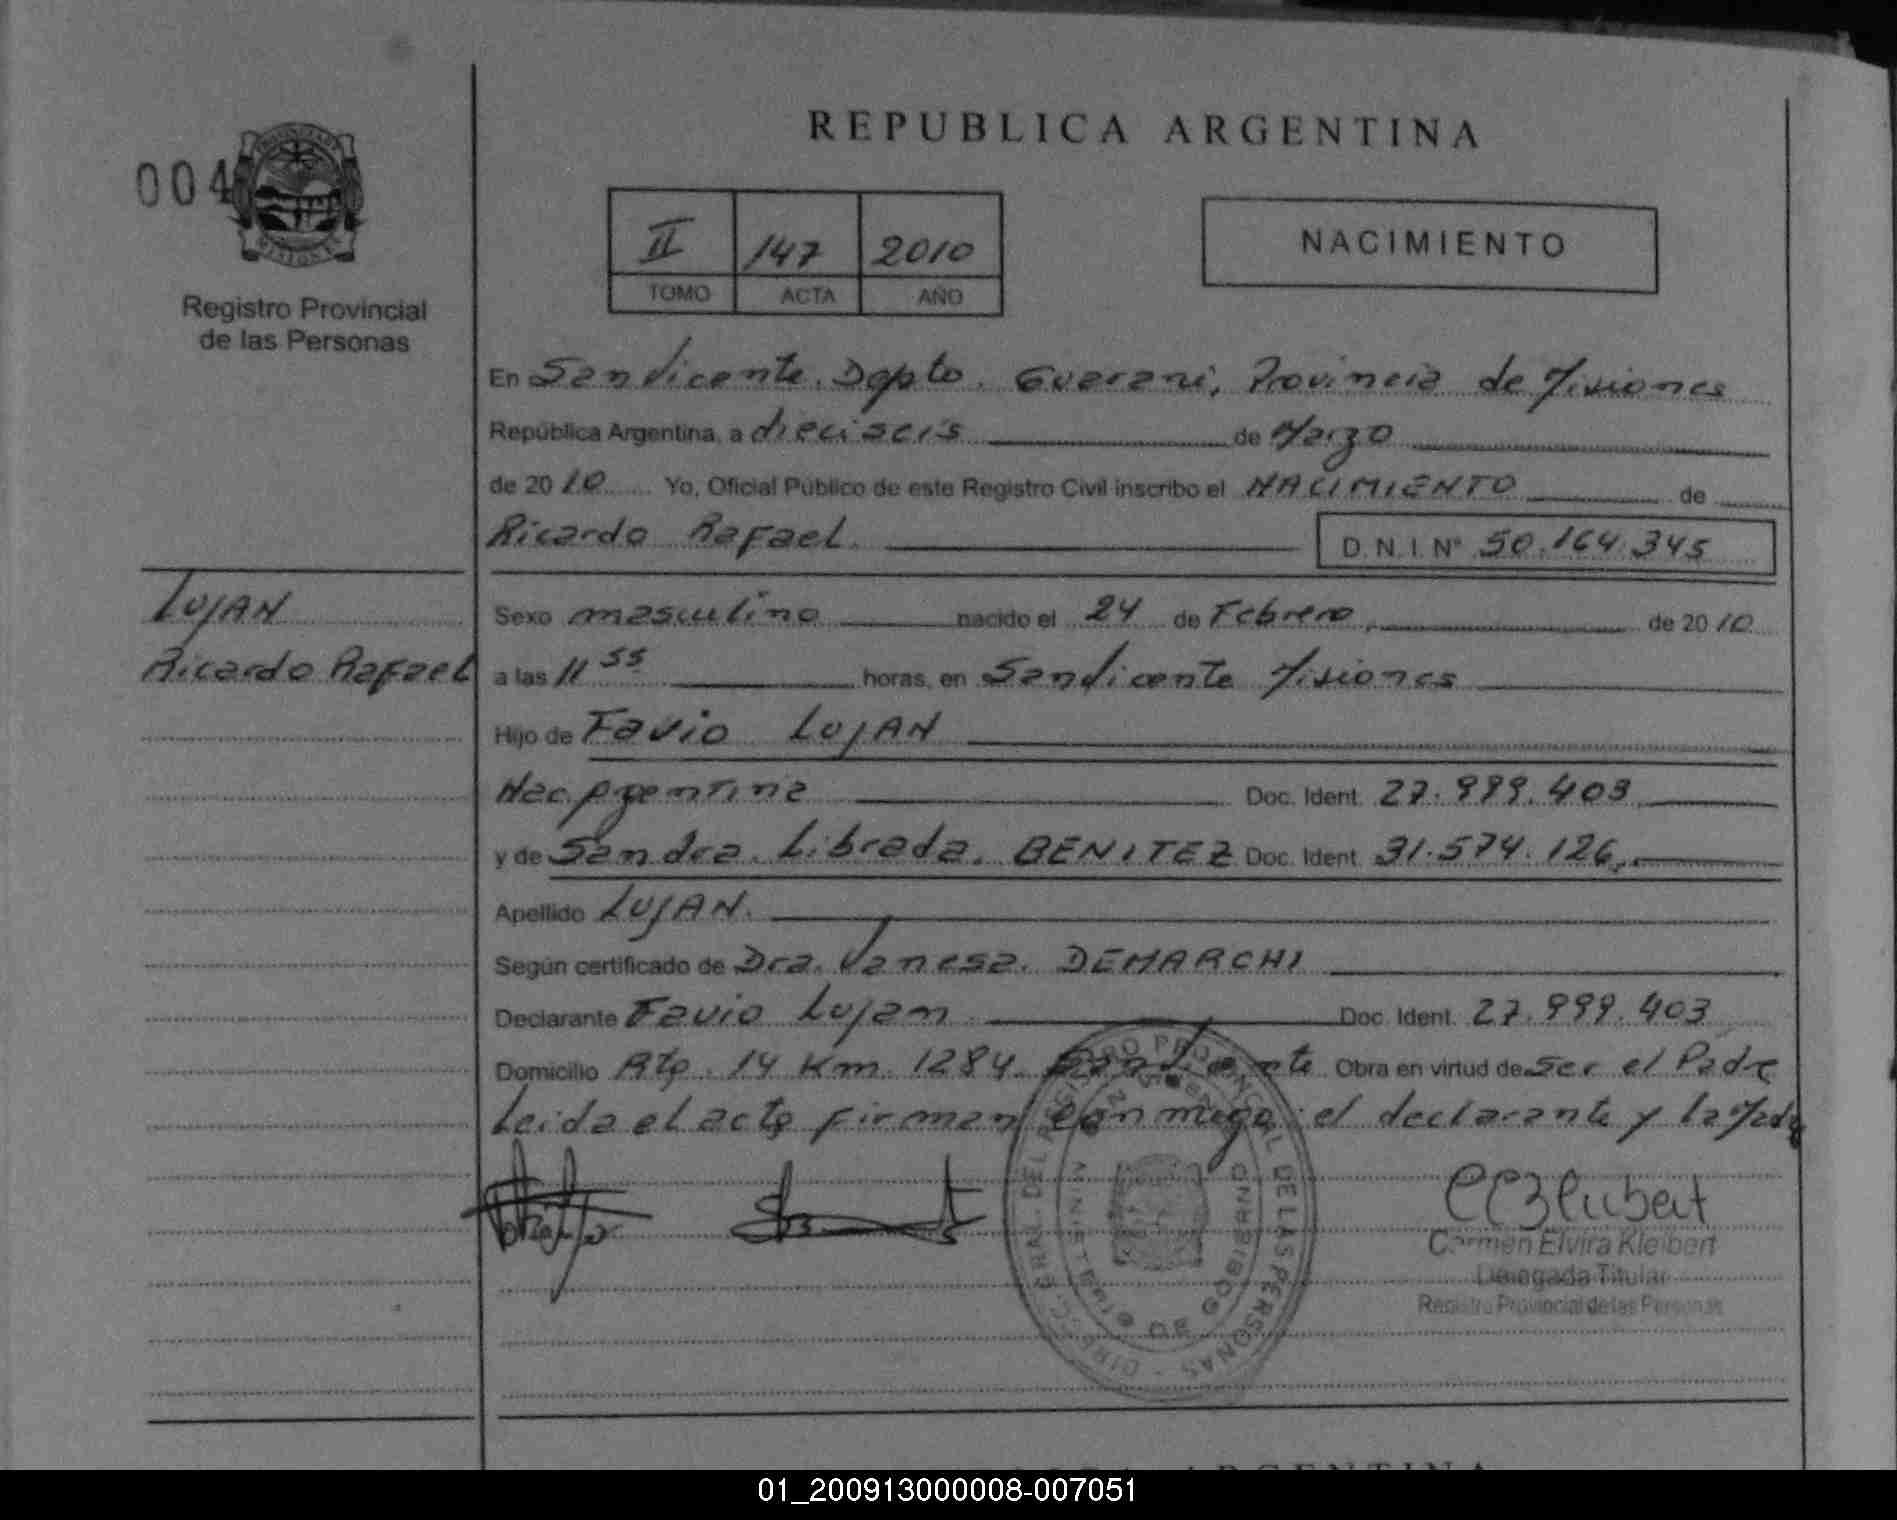 REPUBLICA ARGENTINA
004
II 147 2010
TOMO ACTA AÑO
NACIMIENTO
Registro Provincial
de las Personas
En San Vicente. Depto. Guarani, Provincia de Misiones
República Argentina, a dieciseis de Marzo
de 2010 Yo, Oficial Público de este Registro Civil inscribo el NACIMIENTO de
Ricardo Rafael. D.N.I. Nº 50.164.345
LUJAN
Ricardo Rafael
Sexo masculino nacido el 24 de Febrero, de 2010
a las 11 55 horas, en San Vicente Misiones
Hijo de Favio LUJAN
Nac. Argentina Doc. Ident. 27.999.403
y de Sandra. Librada. BENITEZ Doc. Ident. 31.574.126,
Apellido LUJAN.
Según certificado de Dra. Vanesa. DEMARCHI
Declarante Favio Lujan Doc. Ident. 27.999.403
Domicilio Rta. 14 Km. 1284. San Vicente Obra en virtud de ser el Padre
Leida el acta firman conmigo: el declarante y la Madre
DIREC. GRAL. DEL REGISTRO PROVINCIAL DE LAS PERSONAS
Carmen Elvira Kleibert
Delegada Titular
Registro Provincial de las Personas
01_200913000008-007051